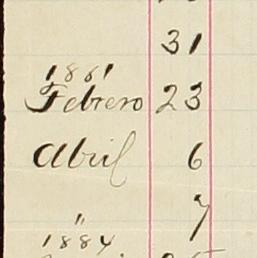 31
1881
Febrero 23
Abril 6
" 7
1884